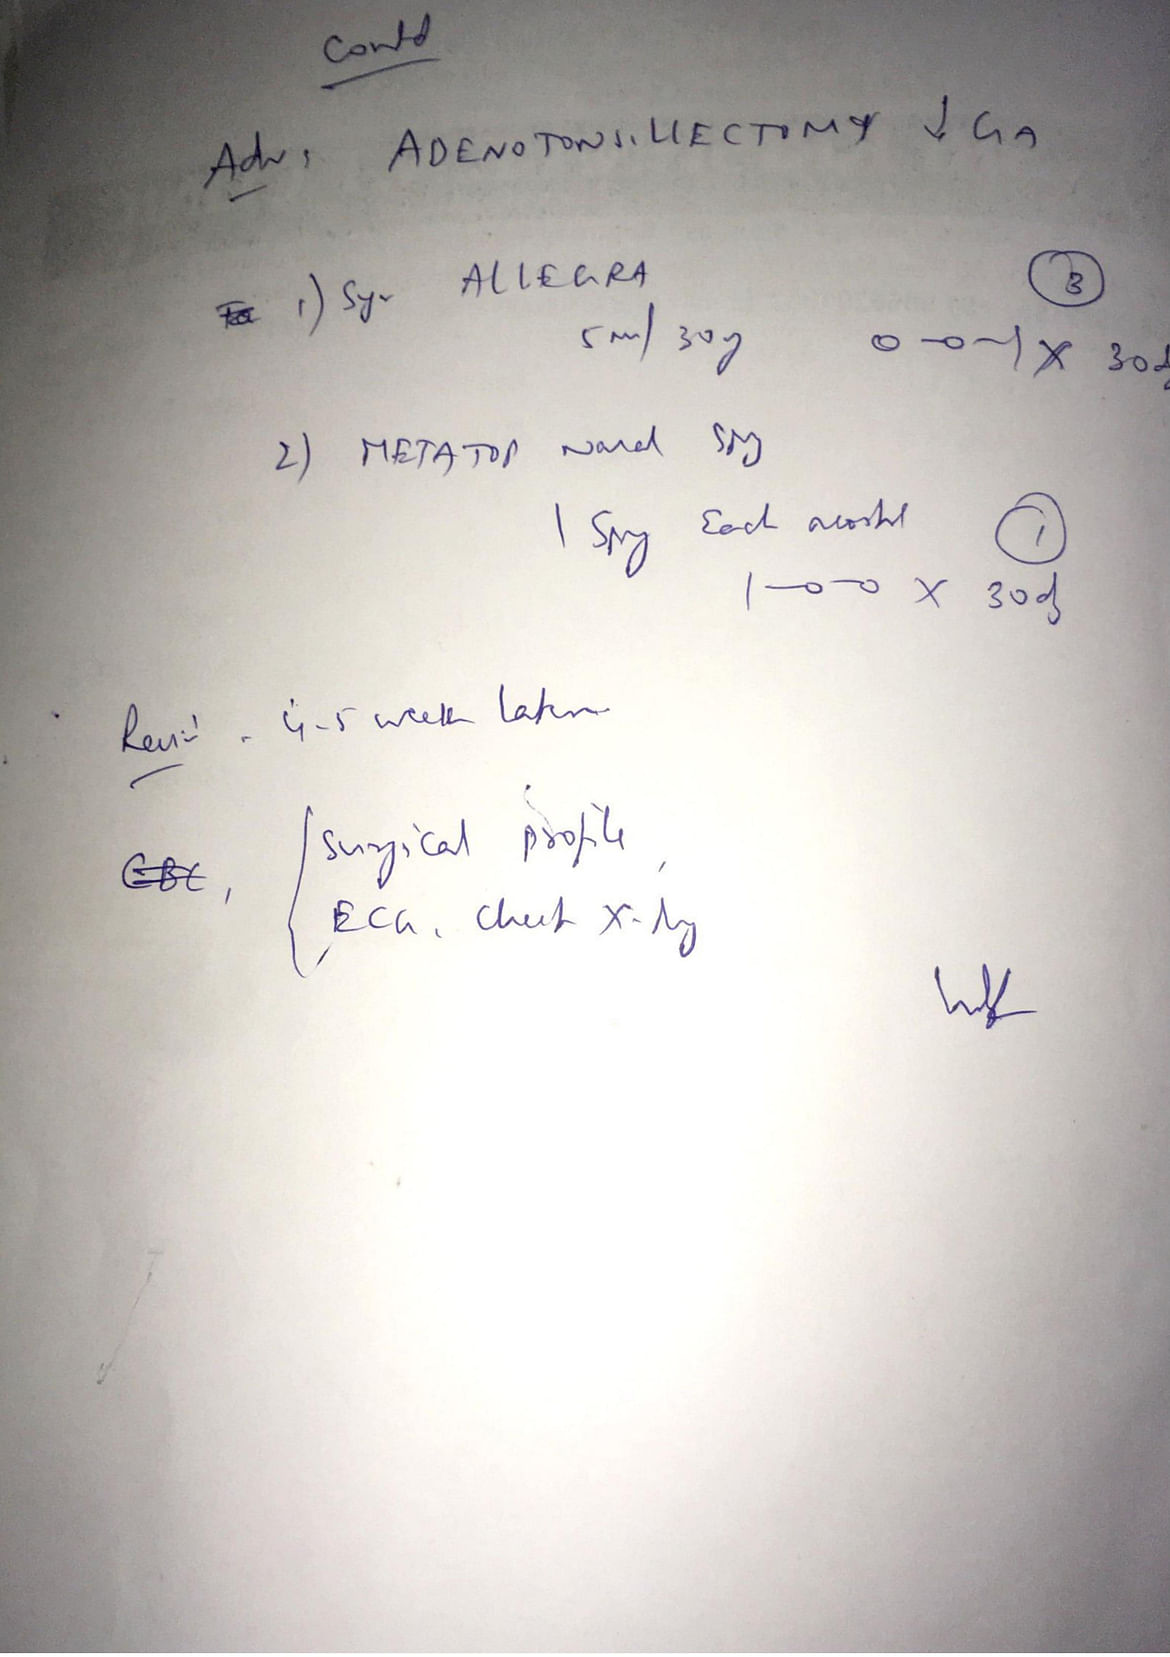 Contd
Adv: ADENOTONSILLECTOMY ↓ GA
1) Syr ALLEGRA 3
5ml/30mg 0-0-1 X 30d
2) METATOP Nasal Spry
1 Spry Each nostril 1
1-0-0 X 30d
Revi: - 4-5 week later
CBC, Surgical profile,
ECG, Chest X-Ray